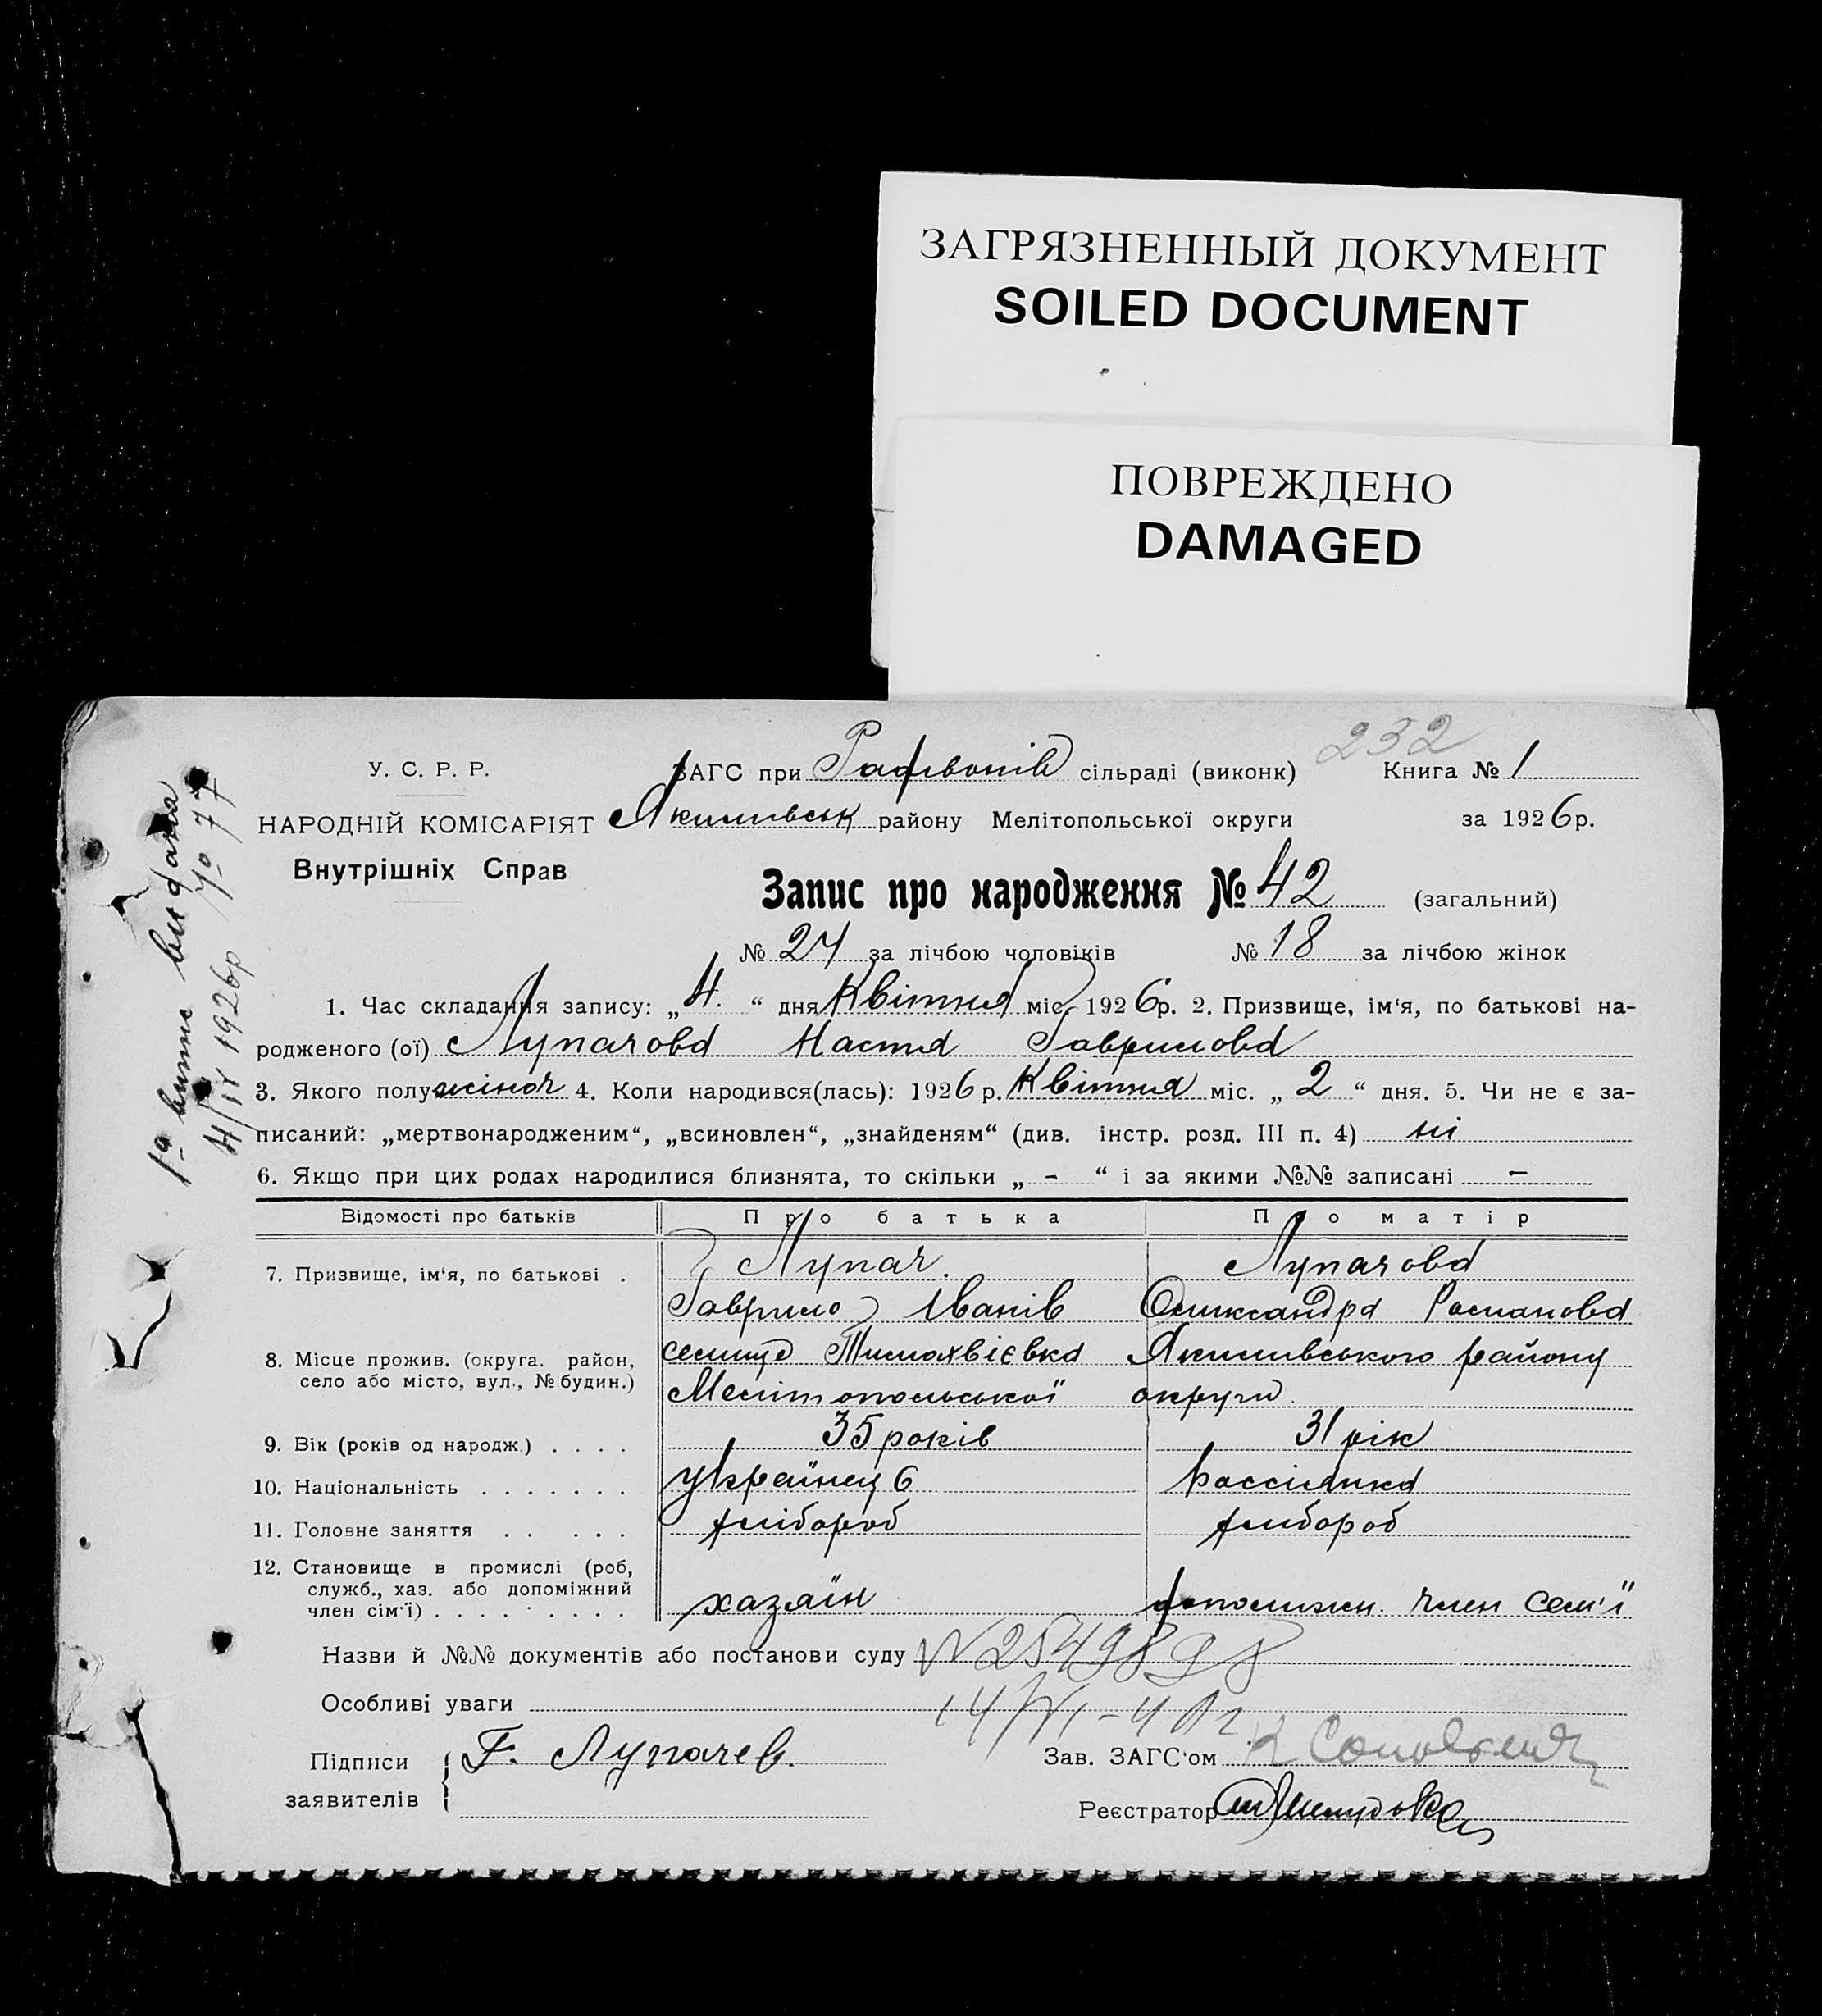 ЗАГРЯЗНЕННЫЙ ДОКУМЕНТ
SOILED DOCUMENT
ПОВРЕЖДЕНО
DAMAGED
232
У. С. Р. Р.
НАРОДНІЙ КОМІСАРІЯТ
Внутрішніх Справ
ЗАГС при сільраді (виконк) Книга № 1
Якимівськ району Мелітопольської округи за 1926 р.
Запис про народження № 42 (загальний)
№ 24 за лічбою чоловіків № 18 за лічбою жінок
1. Час складання запису: „ 4. “ дня Квітня міс. 1926 р. 2. Призвище, ім‘я, по батькові на-
родженого (ої) Лупачова Настя Гаврилова
3. Якого полу жіноч 4. Коли народився(лась): 1926 р. Квітня міс. „ 2 “ дня. 5. Чи не є за-
писаний: „мертвонародженим“, „всиновлен“, „знайденям“ (див. інстр. розд. III п. 4) ні
6. Якщо при цих родах народилися близнята, то скільки „ - “ і за якими №№ записані -
Відомості про батьків Про батька Про матір
7. Призвище, ім‘я, по батькові . Лупач. Лупачова
Гаврило Іванів Оликсандра Романова
8. Місце прожив. (округа. район, село або місто, вул., № будин.) селище Тимохвієвка Якимівського району
Мелітопольської округи.
9. Вік (років од народж.) . . . . 35 років 31 рік
10. Національність . . . . . . . українець россіянка
11. Головне заняття . . . . . хлібороб хлібороб
12. Становище в промислі (роб, служб., хаз. або допоміжний член сім‘ї) . . . . . . . . . . хазяїн допоміжн. член сем'ї
Назви й №№ документів або постанови суду N 2549898
Особливі уваги 14/VI-41 г.
Підписи заявителів Г. Лупачев.
Зав. ЗАГС‘ом
Реєстратор
1а випис видана
4/IV 1926р № 77